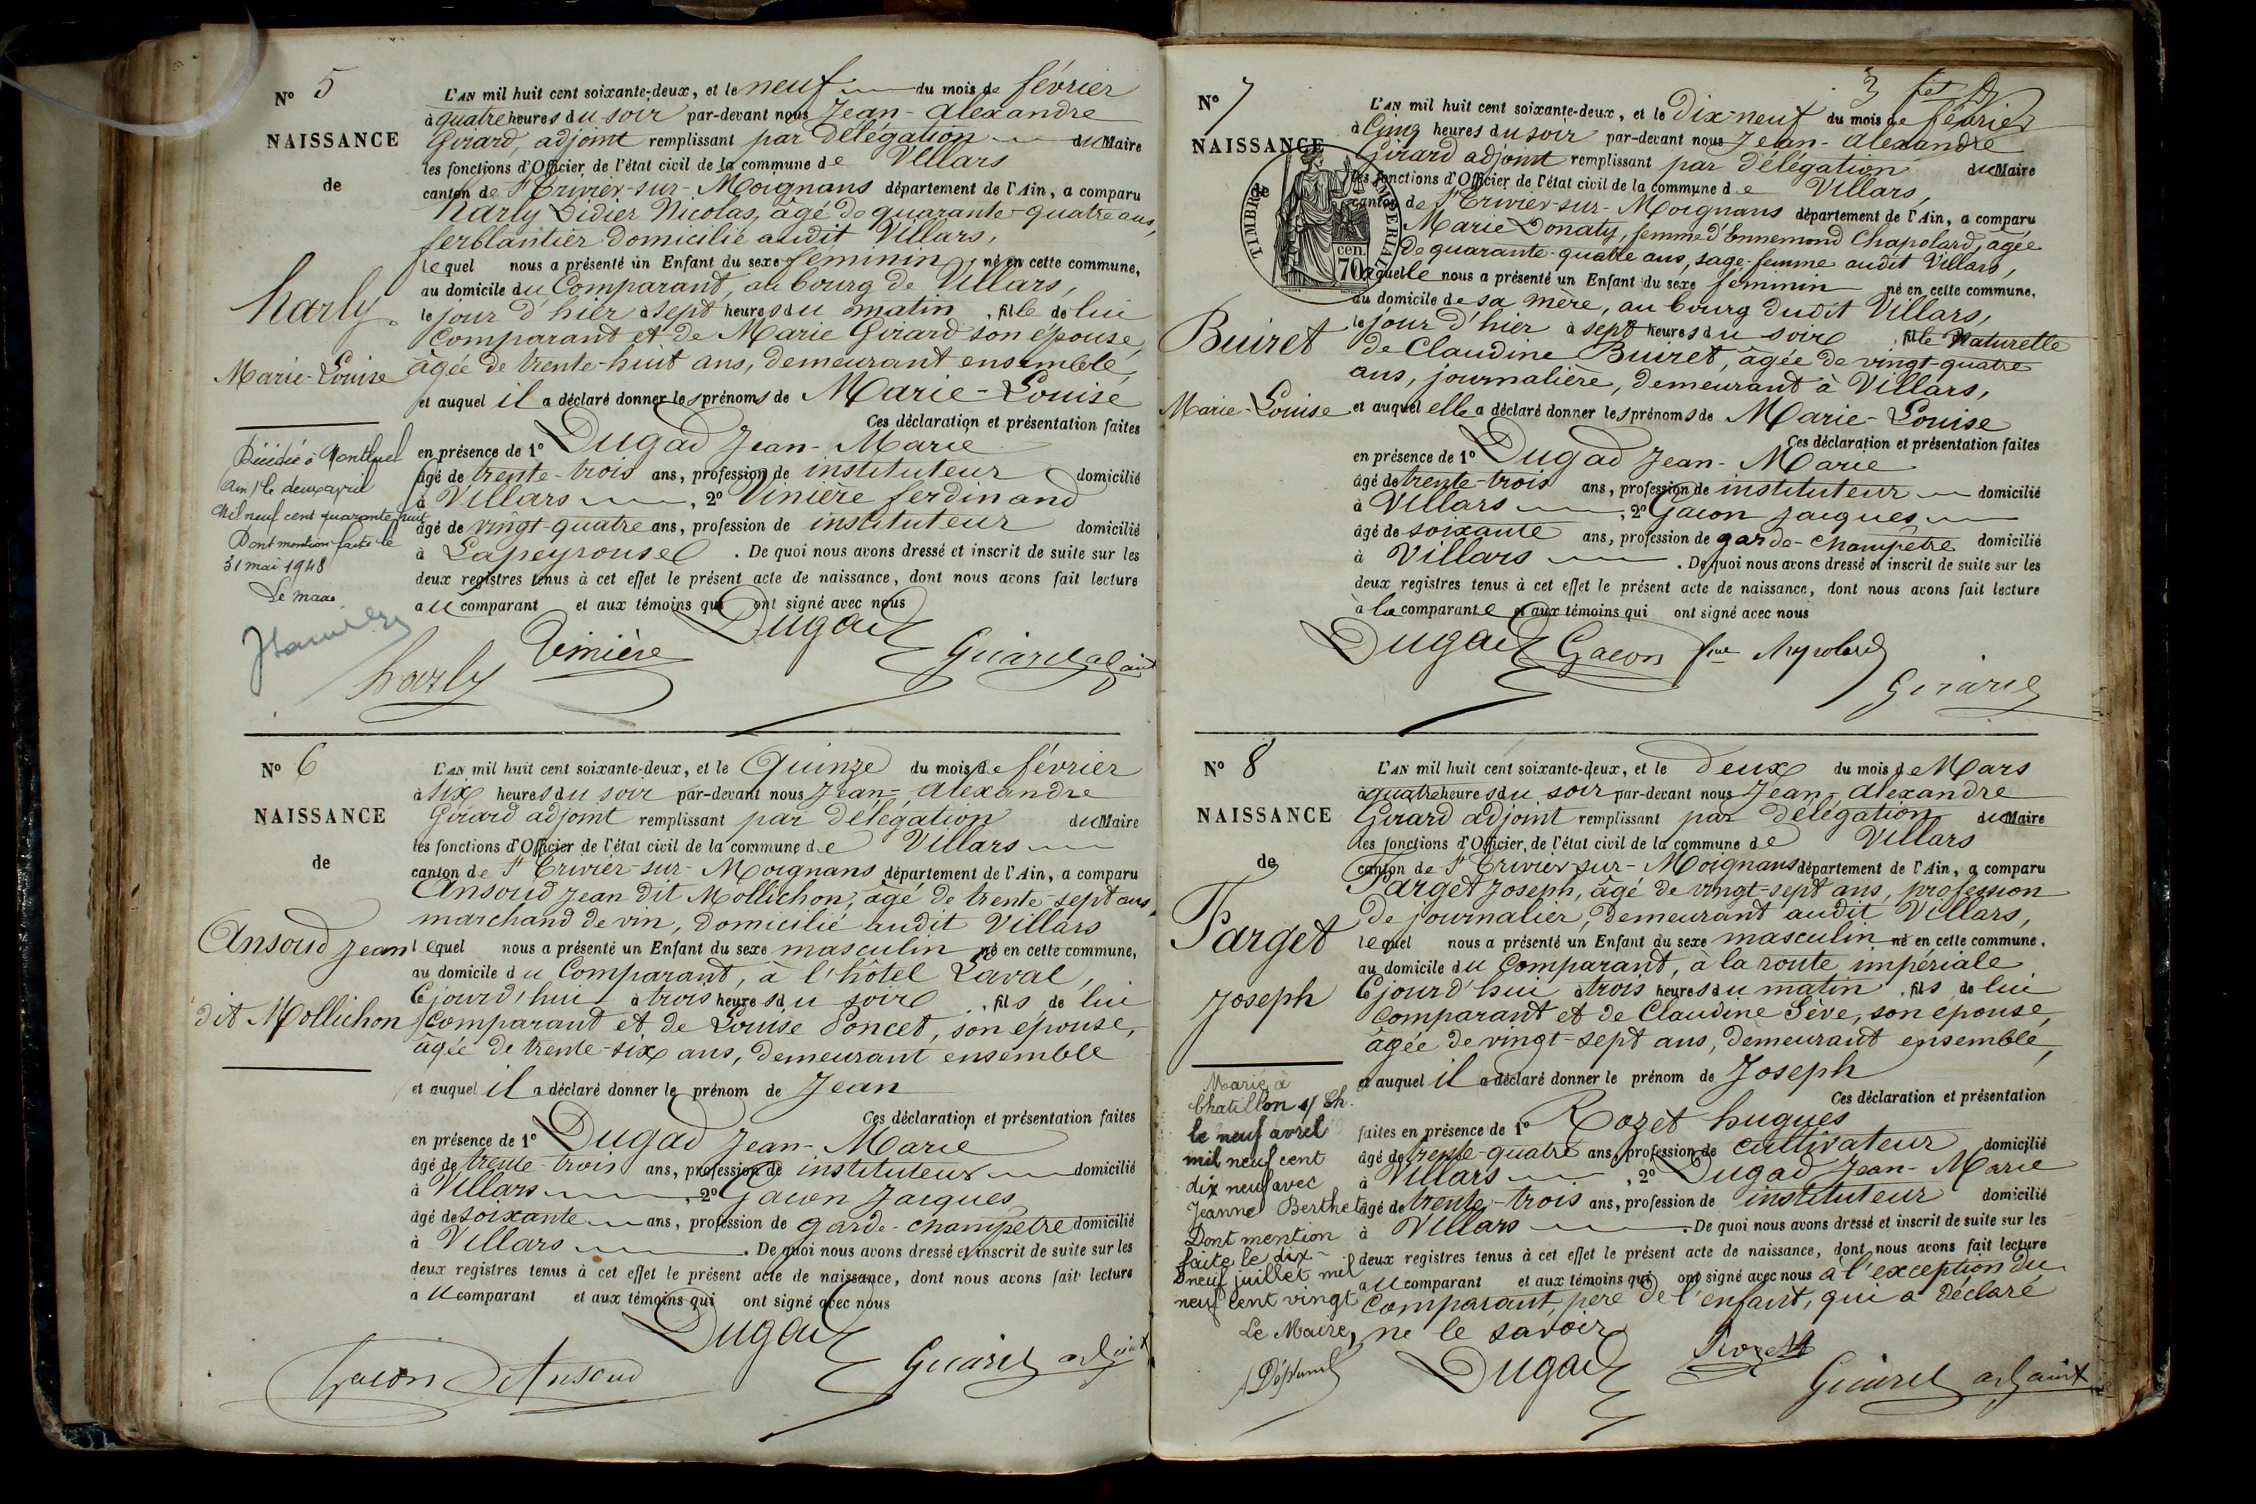 N° 5
NAISSANCE
de
harly
Marie-Louise
Décédée à Montluel
(Ain) le deux avril
Mil neuf cent quarante huit
Dont mention faite le
31 mai 1948
Le maire
L'AN mil huit cent soixante-deux, et le neuf du mois de février
à quatre heures du soir par-devant nous Jean-Alexandre
Girard, adjoint remplissant par délégation du Maire
les fonctions d'Officier de l'état civil de la commune de Villars
canton de St Trivier-sur-Moignans département de l'Ain, a comparu
harly Didier Nicolas, âgé de quarante-quatre ans,
ferblantier domicilié audit Villars,
lequel nous a présenté un Enfant du sexe féminin, né en cette commune,
au domicile du Comparant, au bourg de Villars,
le jour d'hier à sept heures du matin, fille de lui
comparant et de Marie Girard son épouse,
âgée de trente-huit ans, demeurant ensemble,
et auquel il a déclaré donner les prénoms de Marie-Louise
Ces déclaration et présentation faites
en présence de 1° Dugad Jean-Marie
âgé de trente-trois ans, profession de instituteur domicilié
à Villars, 2° Vinière ferdinand
âgé de vingt-quatre ans, profession de instituteur domicilié
à Lapeyrouse. De quoi nous avons dressé et inscrit de suite sur les
deux registres tenus à cet effet le présent acte de naissance, dont nous avons fait lecture
au comparant et aux témoins qui ont signé avec nous
harly Vinière Dugad Girard adjoint
N° 6
NAISSANCE
de
Ansoud Jean
dit Mollichon
L'AN mil huit cent soixante-deux, et le Quinze du mois de février
à six heures du soir par-devant nous Jean-Alexandre
Girard adjoint remplissant par délégation du Maire
les fonctions d'Officier de l'état civil de la commune de Villars
canton de St Trivier-sur-Moignans département de l'Ain, a comparu
Ansoud Jean dit Mollichon, âgé de trente-sept ans,
marchand de vin, domicilié audit Villars
lequel nous a présenté un Enfant du sexe masculin né en cette commune,
au domicile du Comparant, à l'hôtel Laval,
Cejourd'hui à trois heures du soir, fils de lui
comparant et de Louise Poncet, son épouse,
âgée de trente-six ans, demeurant ensemble
et auquel il a déclaré donner le prénom de Jean
Ces déclaration et présentation faites
en présence de 1° Dugad Jean-Marie
âgé de trente-trois ans, profession de instituteur domicilié
à Villars, 2° Gacon Jacques
âgé de soixante ans, profession de garde-champêtre domicilié
à Villars. De quoi nous avons dressé et inscrit de suite sur les
deux registres tenus à cet effet le présent acte de naissance, dont nous avons fait lecture
au comparant et aux témoins qui ont signé avec nous
Gacon Ansoud Dugad Girard adjoint
N° 7
NAISSANCE
de
TIMBRE IMPERIAL
70 cen.
Buiret
Marie-Louise
L'AN mil huit cent soixante-deux, et le Dix-neuf du mois de février
à Cinq heures du soir par-devant nous Jean-Alexandre
Girard adjoint remplissant par délégation du Maire
les fonctions d'Officier de l'état civil de la commune de Villars,
canton de St Trivier-sur-Moignans département de l'Ain, a comparu
Marie Donaty, femme d'Ennemond Chapolard, âgée
de quarante-quatre ans, sage-femme audit Villars,
laquelle nous a présenté un Enfant du sexe féminin né en cette commune,
au domicile de sa mère, au bourg dudit Villars,
le jour d'hier à sept heures du soir, fille Naturelle
de Claudine Buiret, âgée de vingt-quatre
ans, journalière, demeurant à Villars,
et auquel elle a déclaré donner les prénoms de Marie-Louise
Ces déclaration et présentation faites
en présence de 1° Dugad Jean-Marie
âgé de trente-trois ans, profession de instituteur domicilié
à Villars, 2° Gacon Jacques
âgé de soixante ans, profession de garde-champêtre domicilié
à Villars. De quoi nous avons dressé et inscrit de suite sur les
deux registres tenus à cet effet le présent acte de naissance, dont nous avons fait lecture
à la comparante et aux témoins qui ont signé avec nous
Dugad Gacon fme Chapolard Girard
N° 8
NAISSANCE
de
Parget
Joseph
Marié à
Chatillon s/ Ch.
le neuf avril
mil neuf cent
dix neuf avec
Jeanne Berthet
Dont mention
faite le dix-
neuf juillet mil
neuf cent vingt
Le Maire,
L'AN mil huit cent soixante-deux, et le deux du mois de Mars
à quatre heures du soir par-devant nous Jean-Alexandre
Girard adjoint remplissant par délégation du Maire
les fonctions d'Officier de l'état civil de la commune de Villars
canton de St Trivier-sur-Moignans département de l'Ain, a comparu
Parget Joseph, âgé de vingt-sept ans, profession
de journalier, demeurant audit Villars,
lequel nous a présenté un Enfant du sexe masculin né en cette commune,
au domicile du Comparant, à la route impériale
Cejourd'hui à trois heures du matin, fils de lui
comparant et de Claudine Sève, son épouse,
âgée de vingt-sept ans, demeurant ensemble,
et auquel il a déclaré donner le prénom de Joseph
Ces déclaration et présentation
faites en présence de 1° Rozet hugues
âgé de trente-quatre ans, profession de cultivateur domicilié
à Villars, 2° Dugad Jean-Marie
âgé de trente-trois ans, profession de instituteur domicilié
à Villars. De quoi nous avons dressé et inscrit de suite sur les
deux registres tenus à cet effet le présent acte de naissance, dont nous avons fait lecture
au comparant et aux témoins qui ont signé avec nous à l'exception du
comparant, père de l'enfant, qui a déclaré
ne le savoir
Dugad Rozet Girard adjoint